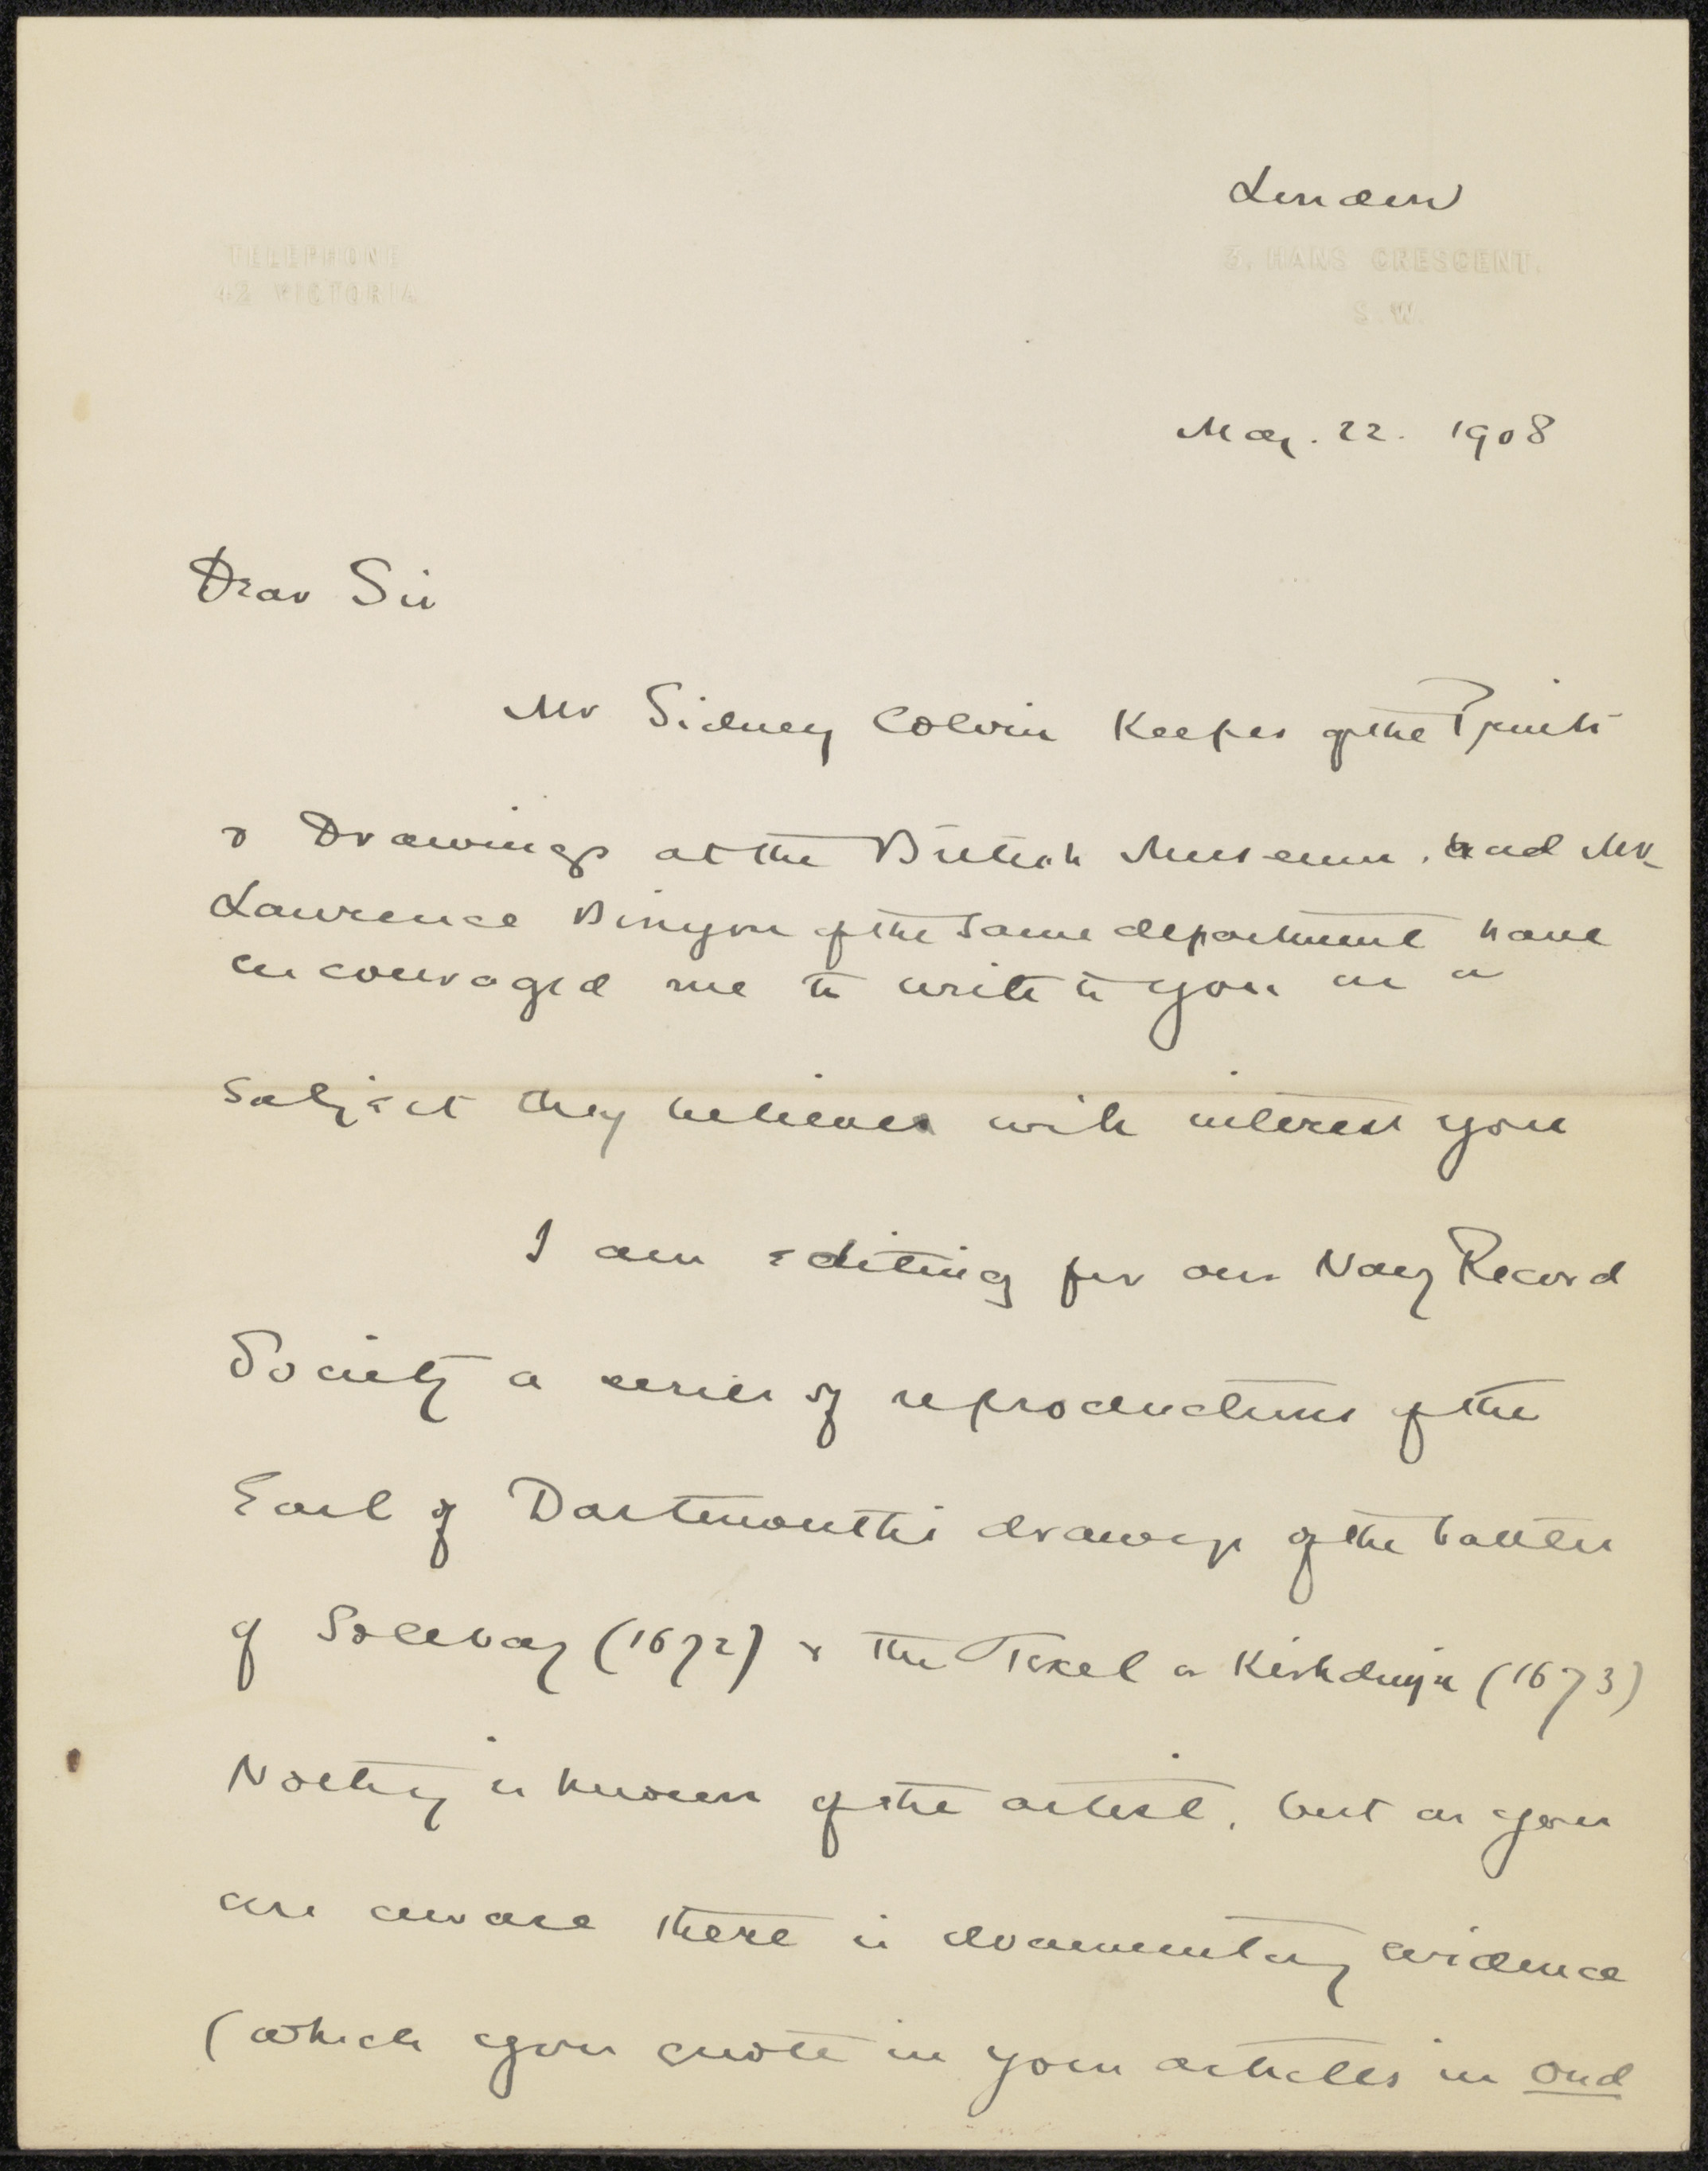 London
TELEPHONE
42 VICTORIA
3, HANS CRESCENT.
S.W.
May. 22. 1908
Dear Sir
Mr Sidney Colvin Keeper of the Prints
& Drawings at the British Museum, and Mr
Lawrence Binyon of the same department have
encouraged me to write to you on a
subject they believe will interest you
I am editing for our Navy Record
Society a series of reproductions of the
Earl of Dartmouth's drawgs of the battles
of Solebay (1672) & the Texel or Kirkduijn (1673)
Nothing is known of the artist, but as you
are aware there is documentary evidence
(which you quote in your articles in Oud